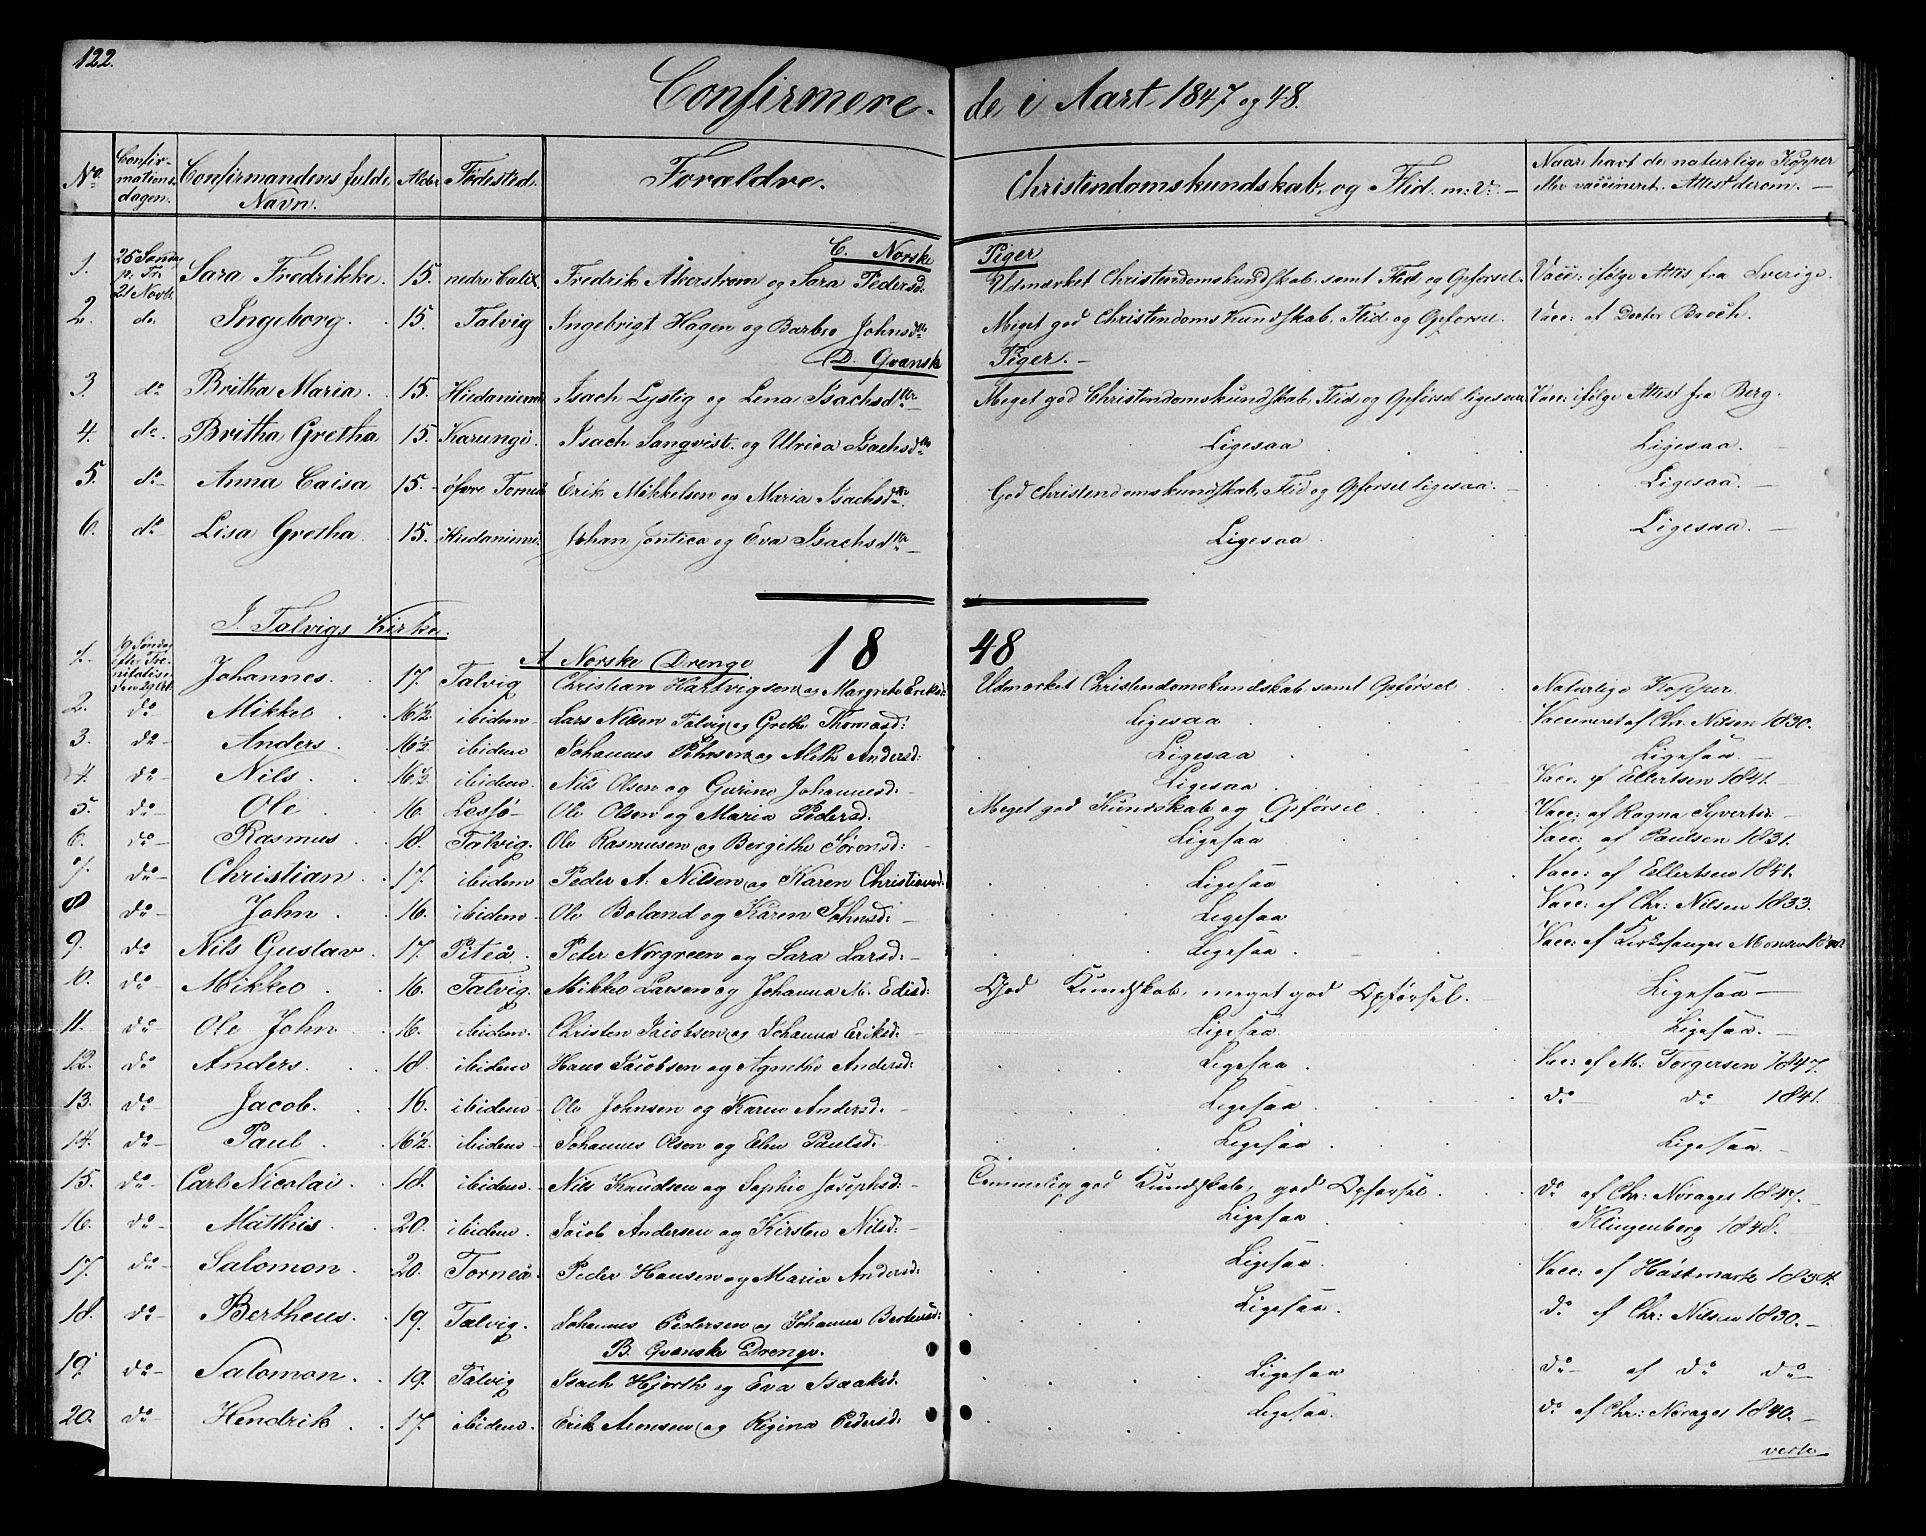 122.
Confirmere- de i Aart 1847 og 48.
No. Confirmationsdagen. Confirmandens fulde Navn. Alder Fødested. Forældre. Christendomskundskab, og Flid. m: V: Naar havt de naturlige Kopper eller vaccineret. Attest derom.
C. Norske Piger
1. 26 Sønd. p. Tr. 21 Novb. Sara Fredrikke. 15. nedre Calix. Fredrik Åkerstrøm og Sara Pedersd. Udmærket Christendomskundskab, samt Flid og Opførsel. Vacc: ifølge Attes fra Sverige.
2. do Ingeborg. 15. Talvig Ingebrigt Hagen og Barbro Johnsdtr Meget god Christendoms Kundskab, Flid og Opførsel. Vacc: af Docter Broch.
D. Qvænske Piger.
3. do Britha Maria. 15. Hiedaniemi Isach Lystig og Lena Isachsdtr Meget god Christendomskundskab, Flid og Opførsel ligesaa Vacc: ifølge Attest fra Berg.
4. do. Britha Gretha 15. Karungi. Isach Sangvist. og Ulrica Isachsdtr Ligesaa Ligesaa.
5. do Anna Caisa 15. øfvre Torneå Erik Mikkelsen og Maria Isachsdtr. God Christendomskundskab, Flid og Opførsel ligesaa. Ligesaa.
6. do Lisa Gretha 15. Hiedaniemi Johan Jontica og Eva Isachsdtr Ligesaa Ligesaa.
I. Talvigs Kirke. 1848
A Norske Drenge
1. 19 Søndag efter Trinitatis den 29 Oct. Johannes. 17. Talvig Christian Hartvigsen og Margrete Eriksd: Udmærket Christendomskundskab samt Opførsel Naturlige Kopper.
2. do Mikkel 16½ ibidem Lars Nilsen Talvig og Grethe Thomasd: Ligesaa Vaccineret af Chr. Nilsen 1830.
3. do Anders. 16½. ibidem Johannes Johnsen og Aleth Andersd: Ligesaa Ligesaa
4. do Nils. 16½ ibidem. Nils Olsen og Gurine Johannesd: Ligesaa Vacc: af Ellertsen 1841.
5. do Ole 16. Lesjø Ole Olsen og Maria Pedersd. Meget god Kundskab og Opførsel Vacc: af Ragna Syvertsd:
6. do Rasmus 18. Talvig. Ole Rasmusen og Bergithe Sørensd: Ligesaa Vacc: af Paulsen 1831.
7. do Christian 17. ibidem Peder A. Nilsen og Karen Christiansd. Ligesaa Vacc: af Ellertsen 1841.
8 do John 16. ibidem Ole Boland og Karen Johnsd: Ligesaa Vacc: af Chr: Nilsen 1833.
9. do Nils Gustav 17. Piteå. Peter Norgreen og Sara Larsd: Ligesaa. Vacc: af Kirkesanger Monsen
10. do Mikkel 16. Talvig. Mikkel Larsen og Johanna M. Edisd: God Kundskab, meget god Opførsel. Ligesaa
11. do Ole John 16. ibidem. Christen Jacobsen og Johanna Eriksd: Ligesaa Ligesaa.
12. do Anders. 18 ibidem Hans Jacobsen og Agnethe Andersd: Ligesaa. Vac: af M: Torgersen 1847.
13. do Jacob. 16. ibidem Ole Johnsen og Karen Andersd. Ligesaa do do 1841.
14. do Paul 16½. ibidem Johannes Olsen og Elen Paulsd: Ligesaa Ligesaa
15. do Carl Nicolai. 18. ibidem. Nils Knudsen og Sophie Josephsd: Temmelig god Kundskab, god Opførsel do af Chr: Norager 1847.
16. do Matthis 20. ibidem. Jacob Andersen og Kirsten Nilsd: Ligesaa Klingenberg 1848.
17. do Salomon. 20. Torneå. Peder Hansen og Maria Andersd: Ligesaa. Vacc: af Håstmark 1834.
18. do Bertheus. 19. Talvig. Johannes Pedersen og Johanna Bertheusd: Ligesaa. do af Chr: Nilsen 1830.
B. Qvænske Drenge.
19. do Salomon. 19. Talvig Isach Hjorth og Eva Isaaksd. Ligesaa do af do do
20. do Hendrik 17. ibidem. Erik Aronsen og Rigina Pedersd: Ligesaa. do af Chr: Norager 1840.
verte